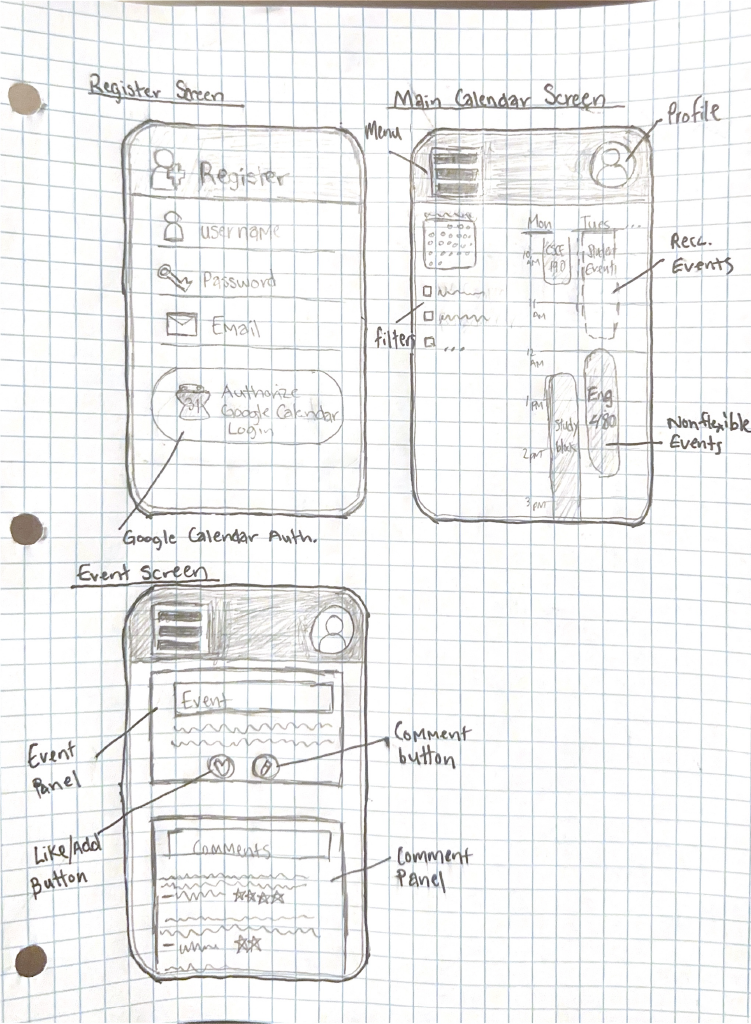 Register Screen
Register
username
Password
Email
Authorize
Google Calendar
Login
31
Google Calendar Auth.
Main Calendar Screen
Menu
Profile
Mon
Tues ...
10 AM
Student
Event
Recc.
Events
filters
11 AM
...
12 AM
1 PM
Eng
480
Study
block
2 PM
3 PM
Nonflexible
Events
Event Screen
Event
Event
Panel
Comment
button
Like/Add
Button
Comments
Comment
Panel